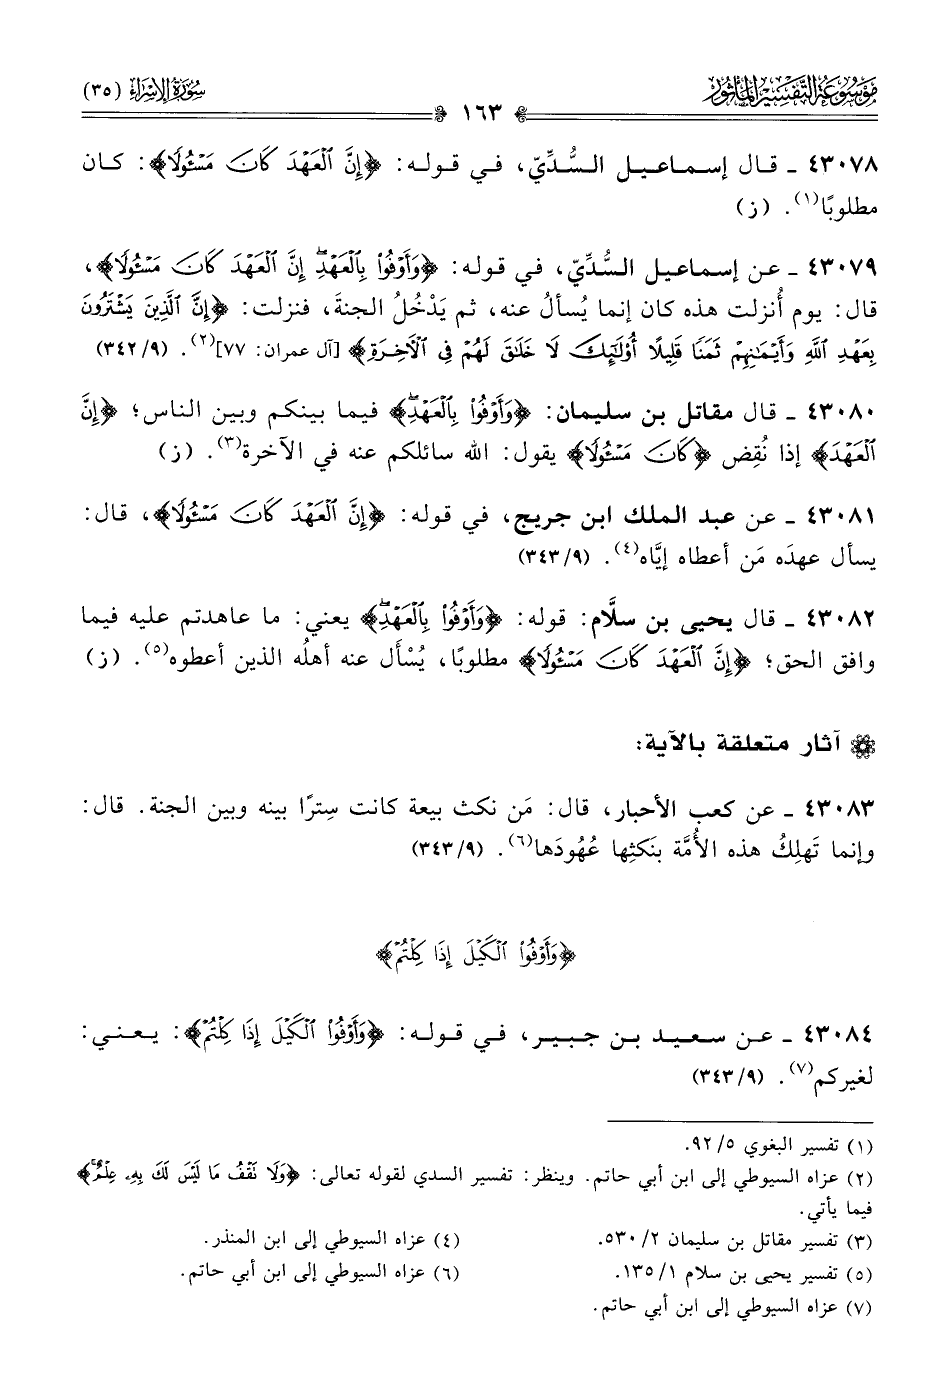 مَوْسُوعَةُ التَّفْسِيرِ المَأْثُورِ
سُورَةُ الإِسْرَاءِ (٣٥)
١٦٣
٤٣٠٧٨ ـ قال إسماعيل السُّدِّيّ، في قوله: ﴿إِنَّ ٱلۡعَهۡدَ كَانَ مَسۡـُٔولٗا﴾: كان
مطلوبًا(١). (ز)
٤٣٠٧٩ ـ عن إسماعيل السُّدِّيّ، في قوله: ﴿وَأَوۡفُواْ بِٱلۡعَهۡدِۖ إِنَّ ٱلۡعَهۡدَ كَانَ مَسۡـُٔولٗا﴾،
قال: يوم أُنزلت هذه كان إنما يُسألُ عنه، ثم يَدْخُلُ الجنةَ، فنزلت: ﴿إِنَّ ٱلَّذِينَ يَشۡتَرُونَ
بِعَهۡدِ ٱللَّهِ وَأَيۡمَٰنِهِمۡ ثَمَنٗا قَلِيلًا أُوْلَٰٓئِكَ لَا خَلَٰقَ لَهُمۡ فِي ٱلۡأٓخِرَةِ﴾ [آل عمران: ٧٧](٢). (٩/ ٣٤٢)
٤٣٠٨٠ ـ قال مقاتل بن سليمان: ﴿وَأَوۡفُواْ بِٱلۡعَهۡدِۖ﴾ فيما بينكم وبين الناس؛ ﴿إِنَّ
ٱلۡعَهۡدَ﴾ إذا نُقِض ﴿كَانَ مَسۡـُٔولٗا﴾ يقول: الله سائلكم عنه في الآخرة(٣). (ز)
٤٣٠٨١ ـ عن عبد الملك ابن جريج، في قوله: ﴿إِنَّ ٱلۡعَهۡدَ كَانَ مَسۡـُٔولٗا﴾، قال:
يسأل عهدَه مَن أعطاه إيَّاه(٤). (٩/ ٣٤٣)
٤٣٠٨٢ ـ قال يحيى بن سلَّام: قوله: ﴿وَأَوۡفُواْ بِٱلۡعَهۡدِۖ﴾ يعني: ما عاهدتم عليه فيما
وافق الحق؛ ﴿إِنَّ ٱلۡعَهۡدَ كَانَ مَسۡـُٔولٗا﴾ مطلوبًا، يُسْأَل عنه أهلُه الذين أعطوه(٥). (ز)
آثار متعلقة بالآية:
٤٣٠٨٣ ـ عن كعب الأحبار، قال: مَن نكث بيعة كانت سِترًا بينه وبين الجنة. قال:
وإنما تَهلِكُ هذه الأُمَّة بنَكثِها عُهُودَها(٦). (٩/ ٣٤٣)
﴿وَأَوۡفُواْ ٱلۡكَيۡلَ إِذَا كِلۡتُمۡ﴾
٤٣٠٨٤ ـ عن سعيد بن جبير، في قوله: ﴿وَأَوۡفُواْ ٱلۡكَيۡلَ إِذَا كِلۡتُمۡ﴾: يعني:
لغيركم(٧). (٩/ ٣٤٣)
(١) تفسير البغوي ٥/ ٩٢.
(٢) عزاه السيوطي إلى ابن أبي حاتم. وينظر: تفسير السدي لقوله تعالى: ﴿وَلَا تَقۡفُ مَا لَيۡسَ لَكَ بِهِۦ عِلۡمٌۚ﴾
فيما يأتي.
(٣) تفسير مقاتل بن سليمان ٢/ ٥٣٠.
(٤) عزاه السيوطي إلى ابن المنذر.
(٥) تفسير يحيى بن سلام ١/ ١٣٥.
(٦) عزاه السيوطي إلى ابن أبي حاتم.
(٧) عزاه السيوطي إلى ابن أبي حاتم.